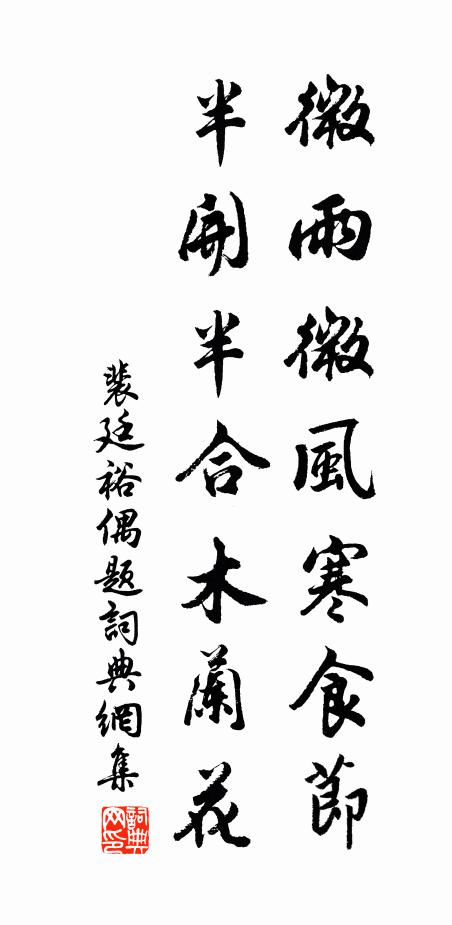 微雨微風寒食節
半開半合木蘭花
裴廷裕偶題詞典網集
詞典
网印